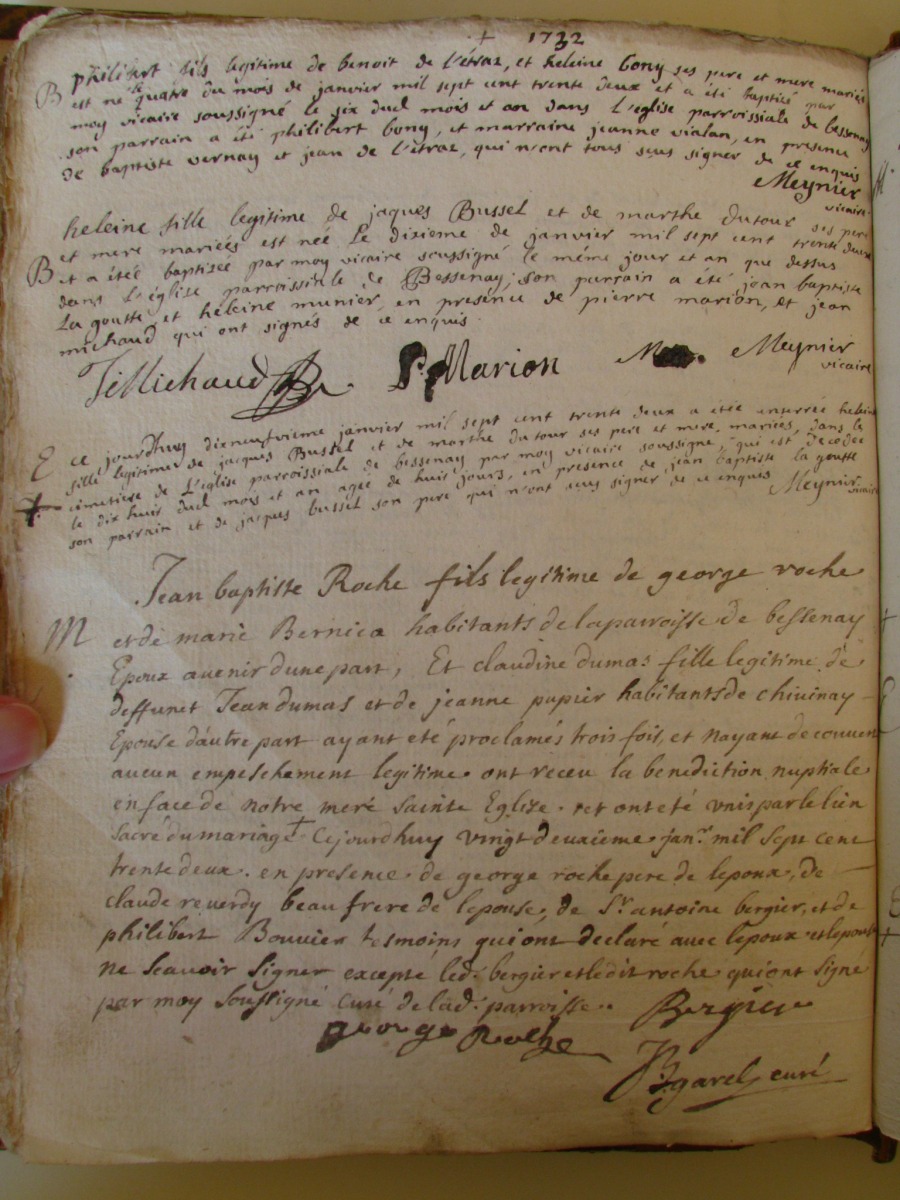 + 1732
philibert fils legitime de benoit de l'étraz, et heleine bony ses pere et mere mariés
B est né le quatre du mois de janvier mil sept cent trente deux et a été baptizé par
moy vicaire soussigné le six dud mois et an dans l'eglise parroissiale de bessenay
son parrain a été philibert bony, et marraine jeanne vialan, en presence
de baptiste vernay et jean de l'étraz, qui n'ont tous sceus signer de ce enquis
Meynier
vicaire
heleine fille legitime de jaques Bussel et de marthe dutour ses pere
et mere mariés est née le dixieme de janvier mil sept cent trente deux
B et a étée baptizée par moy vicaire soussigné le même jour et an que dessus
dans l'église parroissiale de Bessenay, son parrain a été jean baptiste
La goutte et heleine munier, en presence de pierre marion, et jean
michaud qui ont signés de ce enquis
J Michaud P. Marion Meynier
vicaire
E ce jourdhuy dieneuvieme janvier mil sept cent trente deux a étée enterrée heleine
fille legitime de jacques Bussel et de marthe du tour ses pere et mere, mariés, dans le
+ cimetiere de l'église parroissiale de bessenay par moy vicaire soussigné, qui est decedée
le dix huit dud mois et an agée de huit jours, en presence de jean baptiste la goutte
son parrain et de jacques bussel son pere qui n'ont sceus signer de ce enquis Meynier vicaire
Jean baptiste Roche fils legitime de george roche
M et de marie Bernica habitants de la parroisse de bessenay
Epoux avenir dune part, Et claudine dumas fille legitime de
deffunct Jean dumas et de jeanne pupier habitants de chivinay
Epouse dautre part ayant eté proclamés trois fois, et nayant decouvert
aucun empeschement legitime ont receu la benediction nuptiale
en face de notre meré sainte Eglize . et ont eté unis par le lien
sacré du mariage + Cejourdhuy vingt deuxieme janr. mil sept cent
trente deux . en presence de george roche pere de lepoux, de
claude reverdy beau frere de lepouse, de Sr. antoine bergier, et de
philibert Bouvier tesmoins qui ont declaré avec lepoux et lepouse
ne scavoir signer excepté led. bergier et ledit roche qui ont signé
par moy soussigné curé de lad. parroisse. Bergier
george Roche
garel curé